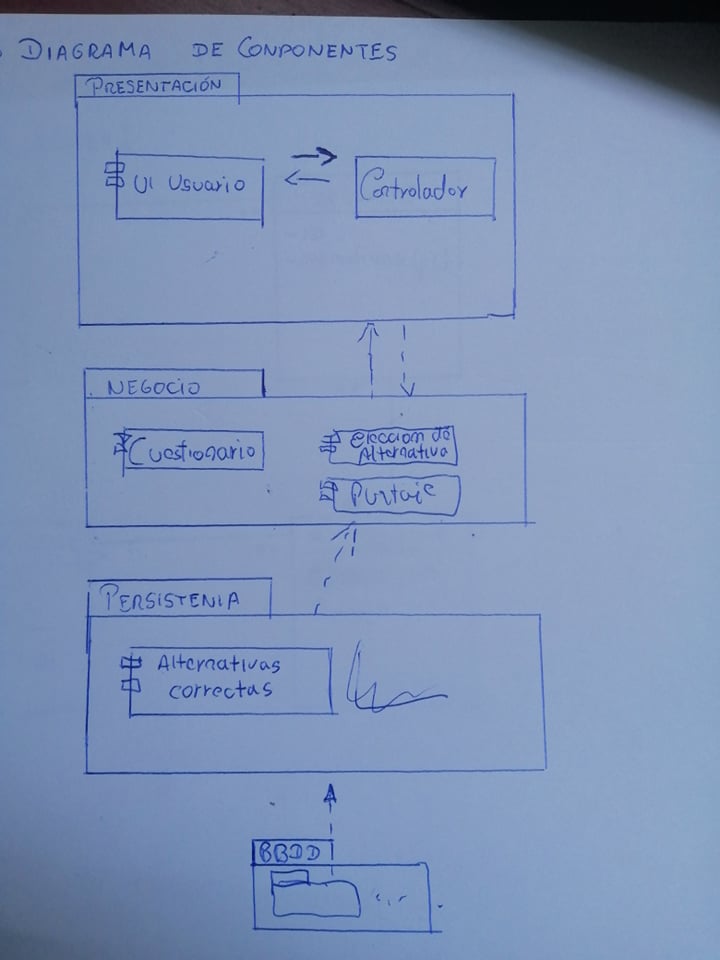 DIAGRAMA DE CONPONENTES
PRESENTACIÓN
UI Usuario
Controlador
NEGOCIO
Cuestionario
elección de
Alternativa
Puntaje
PERSISTENIA
Alternativas
correctas
BBDD